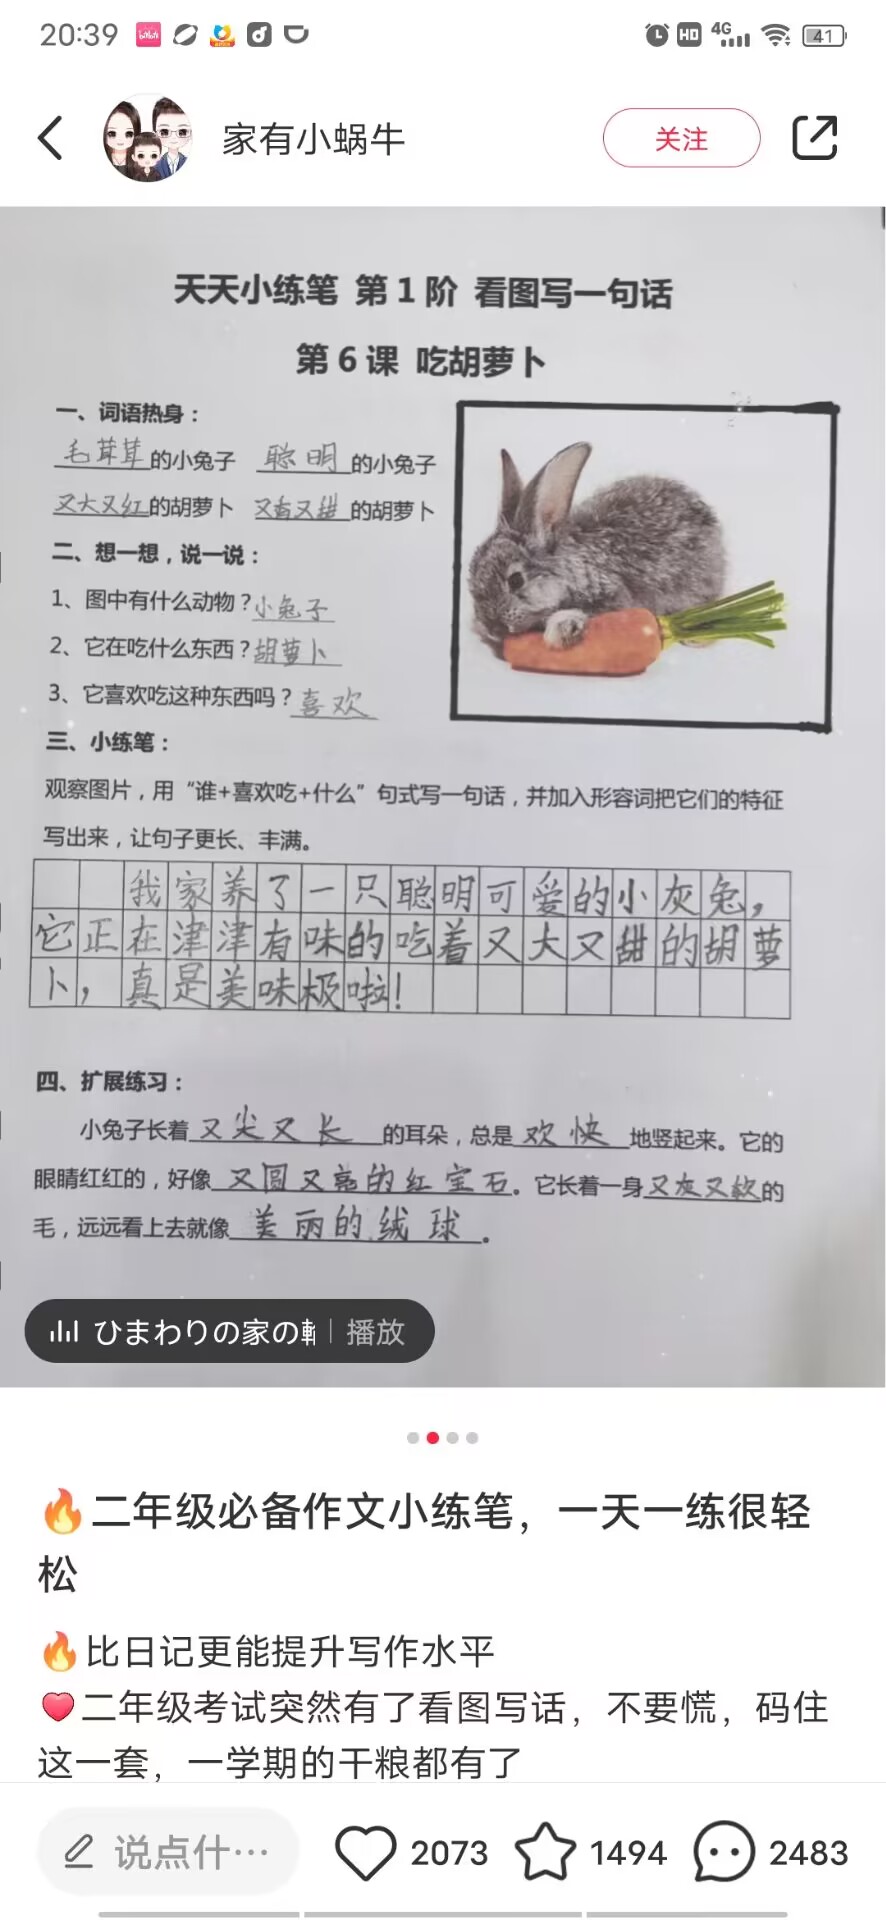 20:39
HD 4G 41
家有小蜗牛
关注
天天小练笔 第1阶 看图写一句话
第6课 吃胡萝卜
一、词语热身：
毛茸茸的小兔子 聪明的小兔子
又大又红的胡萝卜 又香又甜的胡萝卜
二、想一想，说一说：
1、图中有什么动物？小兔子
2、它在吃什么东西？胡萝卜
3、它喜欢吃这种东西吗？喜欢
三、小练笔：
观察图片，用“谁+喜欢吃+什么”句式写一句话，并加入形容词把它们的特征
写出来，让句子更长、丰满。
我家养了一只聪明可爱的小灰兔，
它正在津津有味的吃着又大又甜的胡萝
卜，真是美味极啦！
四、扩展练习：
小兔子长着又尖又长的耳朵，总是欢快地竖起来。它的
眼睛红红的，好像又圆又亮的红宝石。它长着一身又灰又软的
毛，远远看上去就像美丽的绒球。
ひまわりの家の 播放
🔥二年级必备作文小练笔，一天一练很轻
松
🔥比日记更能提升写作水平
❤️二年级考试突然有了看图写话，不要慌，码住
这一套，一学期的干粮都有了
说点什… 2073 1494 2483